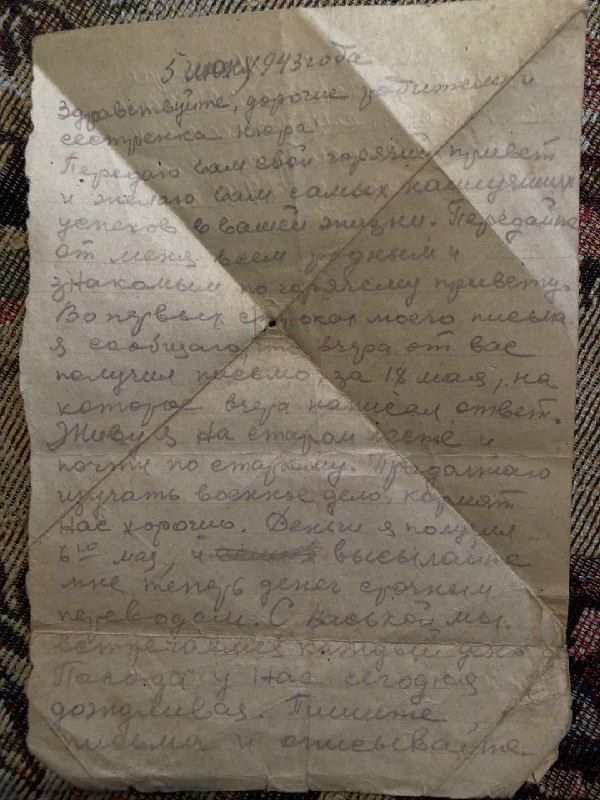 5 июня 1943 года
Здравствуйте, дорогие родители и
сестренка Нюра.
Передаю вам свой горячий привет
и желаю вам самых наилучших
успехов в вашей жизни. Передайте
от меня всем родным и
знакомым по горячему привету.
Во первых строках моего письма
я сообщаю, что вчера от вас
получил письмо, за 18 мая, на
которое вчера написал ответ.
Живу я на старом месте и
почти по старому. Продолжаю
изучать военное дело кормят
нас хорошо. Деньги я получил
6го мая, и высылайте
мне теперь денег срочным
переводом. С Васькой мы
встречаемся каждый день
Погода у нас сегодня
дождливая. Пишите
письма и описывайте